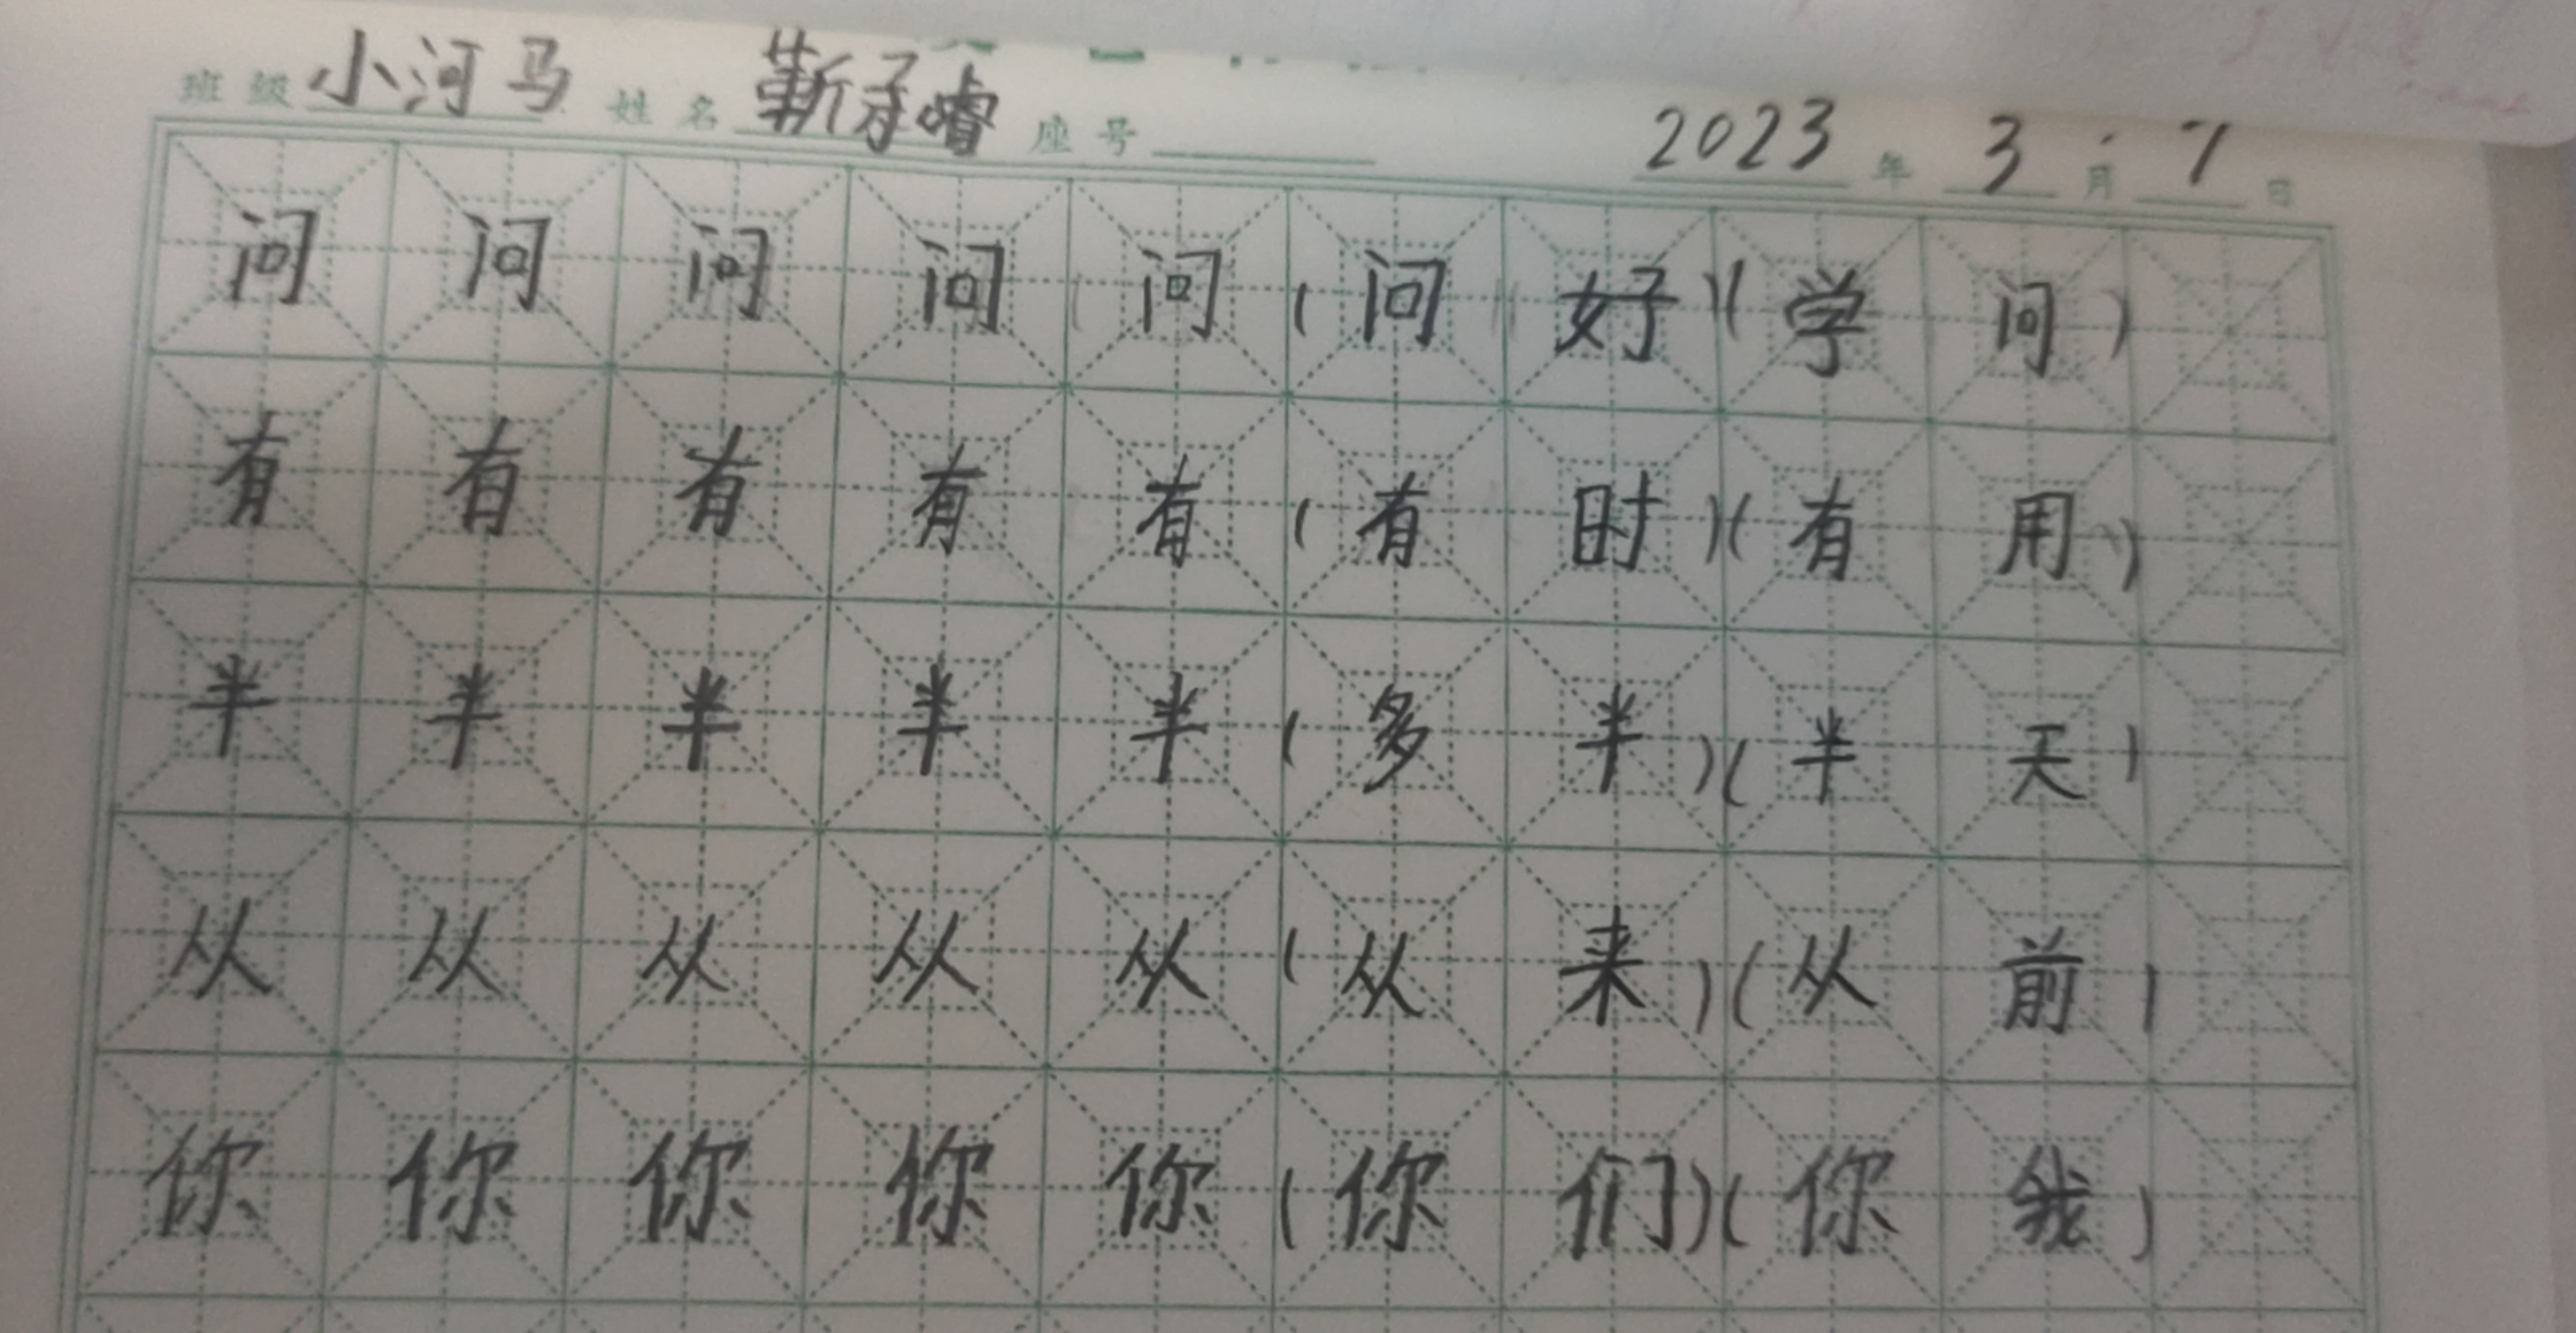 班级 小河马 姓名 靳承睿 座号 2023 年 3 月 7 日
问 问 问 问 问 (问 好)(学 问)
有 有 有 有 有 (有 时)(有 用)
半 半 半 半 半 (多 半)(半 天)
从 从 从 从 从 (从 来)(从 前)
你 你 你 你 你 (你 们)(你 我)